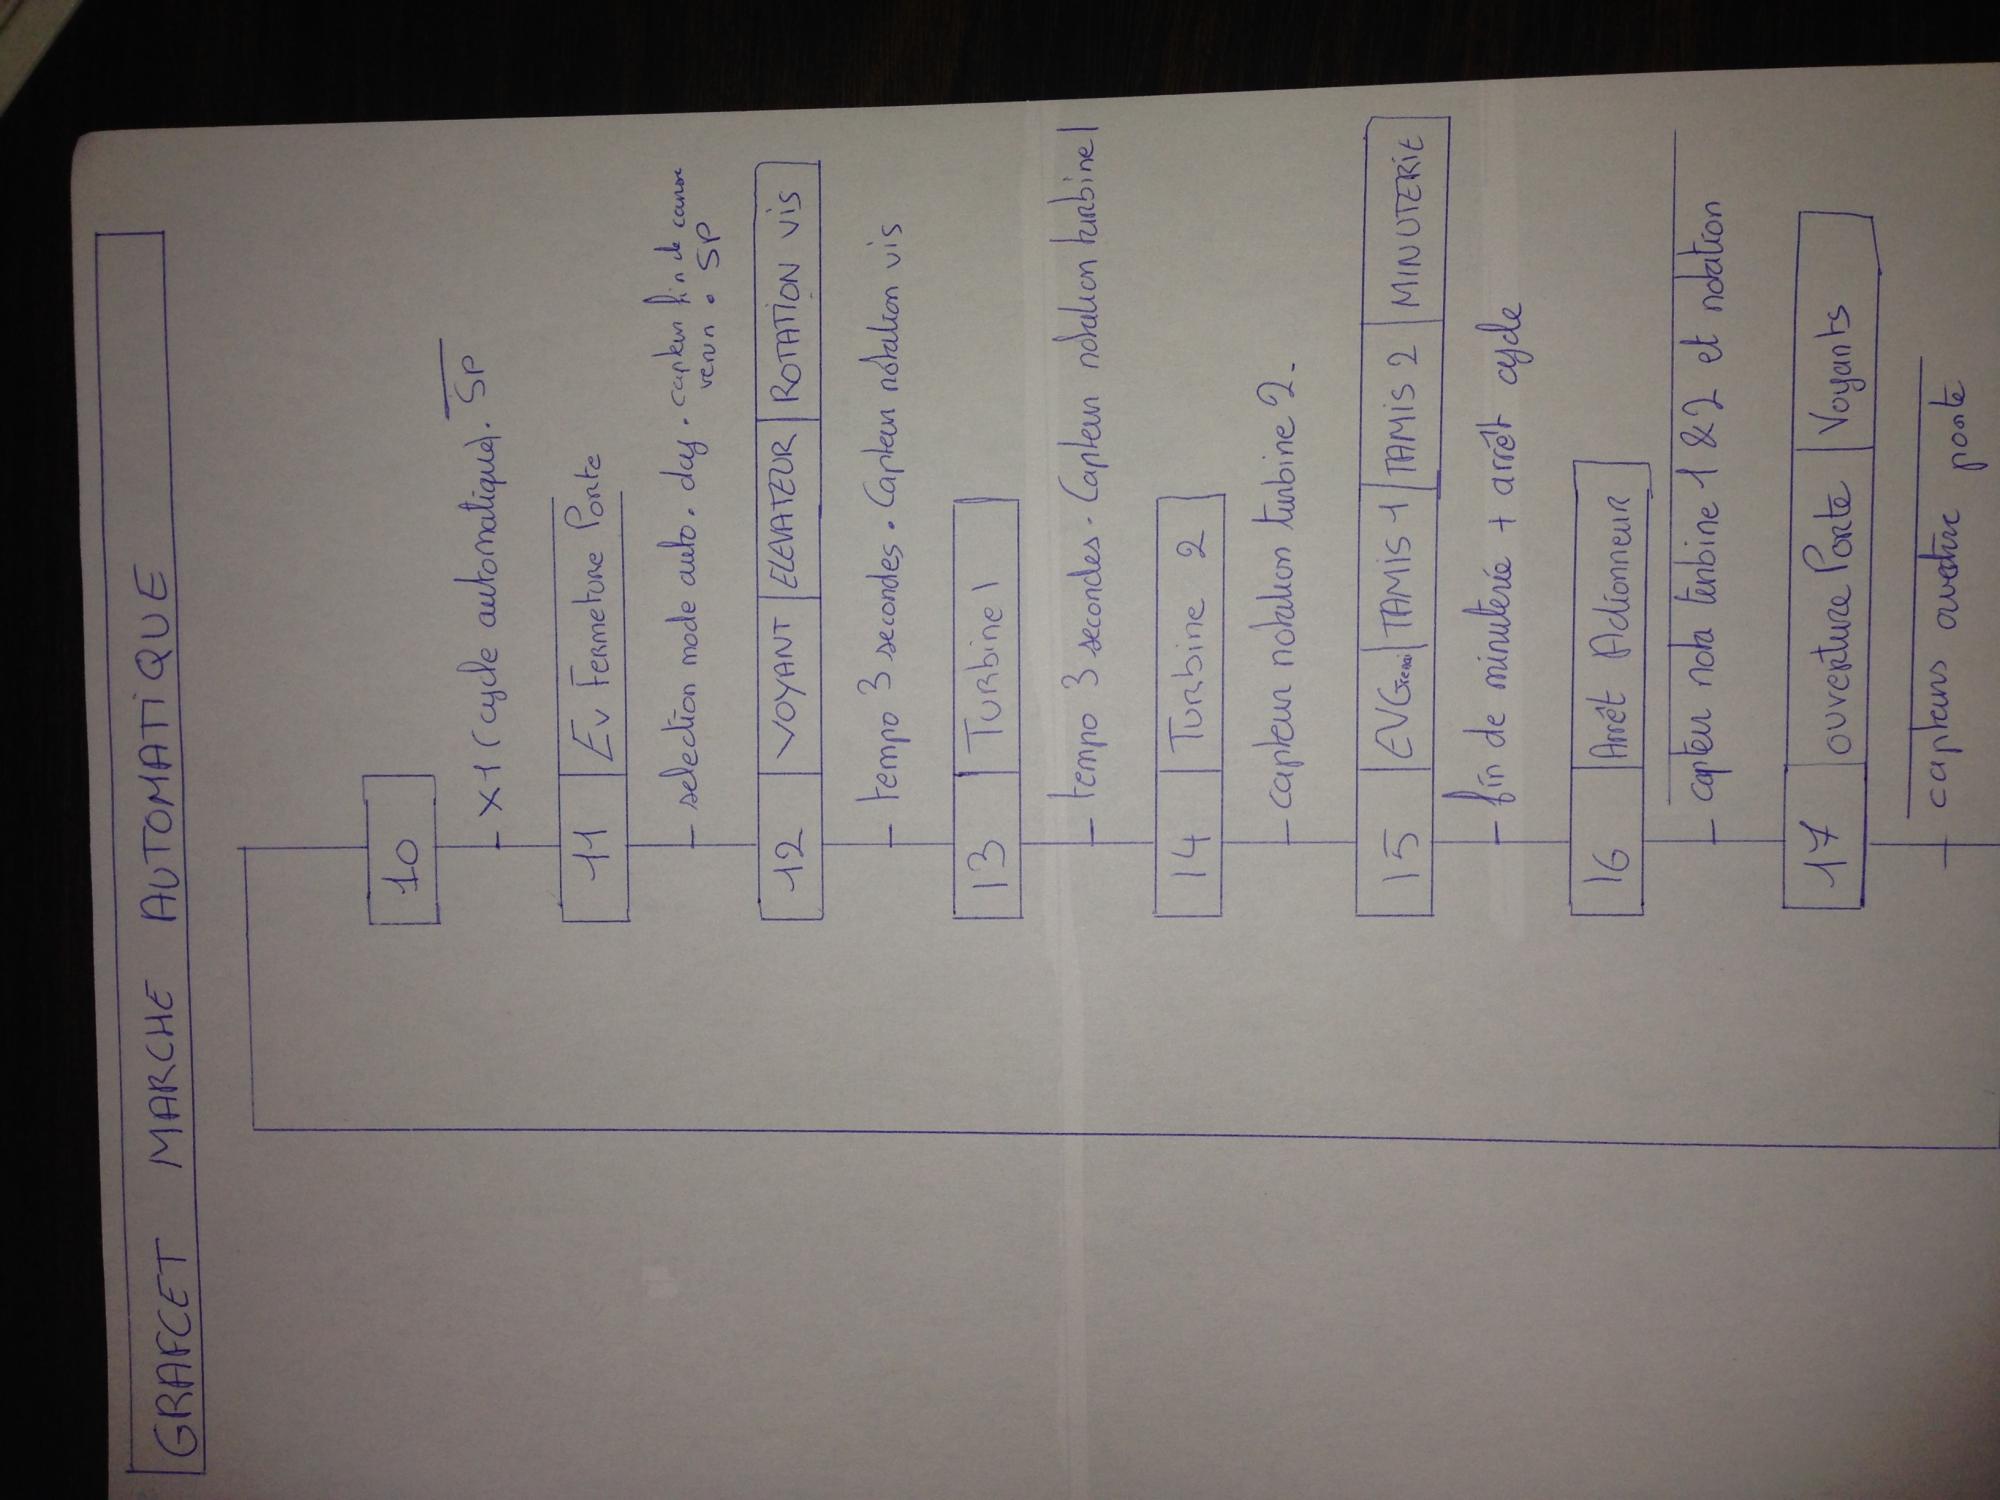 GRAFCET MARCHE AUTOMATIQUE
10
X1 (cycle automatique). SP
11 EV FERMETURE PORTE
selection mode auto. dcy. capteur fin de course
verin. SP
12 VOYANT ELEVATEUR ROTATION VIS
tempo 3 secondes. Capteur rotation vis
13 TURBINE 1
tempo 3 secondes. Capteur rotation turbine 1
14 TURBINE 2
capteur rotation turbine 2.
15 EVGrenai TAMIS 1 TAMIS 2 MINUTERIE
fin de minuterie + arrêt cycle
16 Arrêt Actionneur
capteur rota turbine 1 & 2 et rotation
17 OUVERTURE PORTE Voyants
capteurs ouverture porte